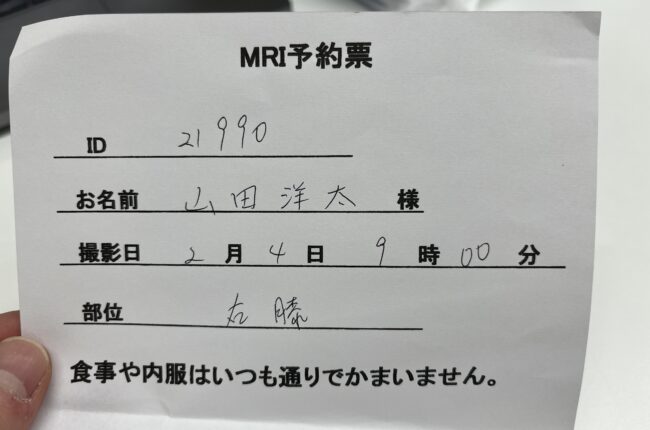 MRI予約票
ID 21990
お名前 山田洋太 様
撮影日 2月4日 9時00分
部位 右膝
食事や内服はいつも通りでかまいません。